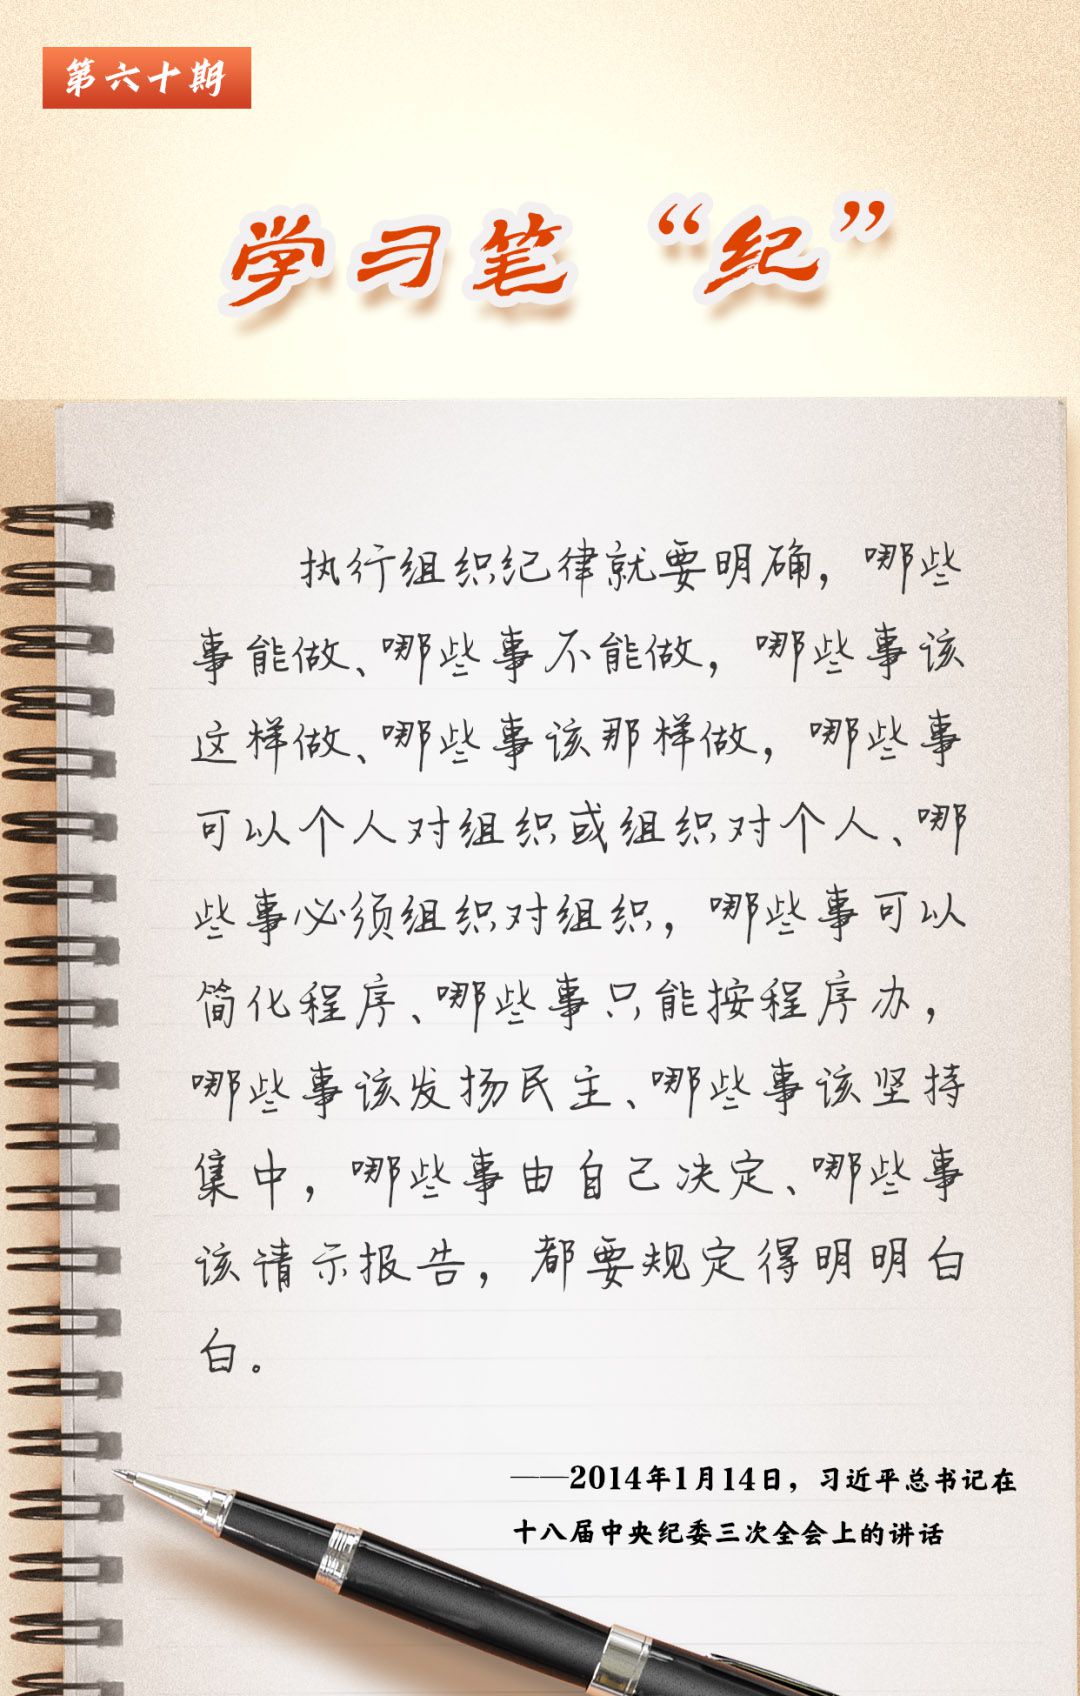 第六十期
学习笔“纪”
执行组织纪律就要明确，哪些
事能做、哪些事不能做，哪些事该
这样做、哪些事该那样做，哪些事
可以个人对组织或组织对个人、哪
些事必须组织对组织，哪些事可以
简化程序、哪些事只能按程序办，
哪些事该发扬民主、哪些事该坚持
集中，哪些事由自己决定、哪些事
该请示报告，都要规定得明明白
白。
——2014年1月14日，习近平总书记在
十八届中央纪委三次全会上的讲话